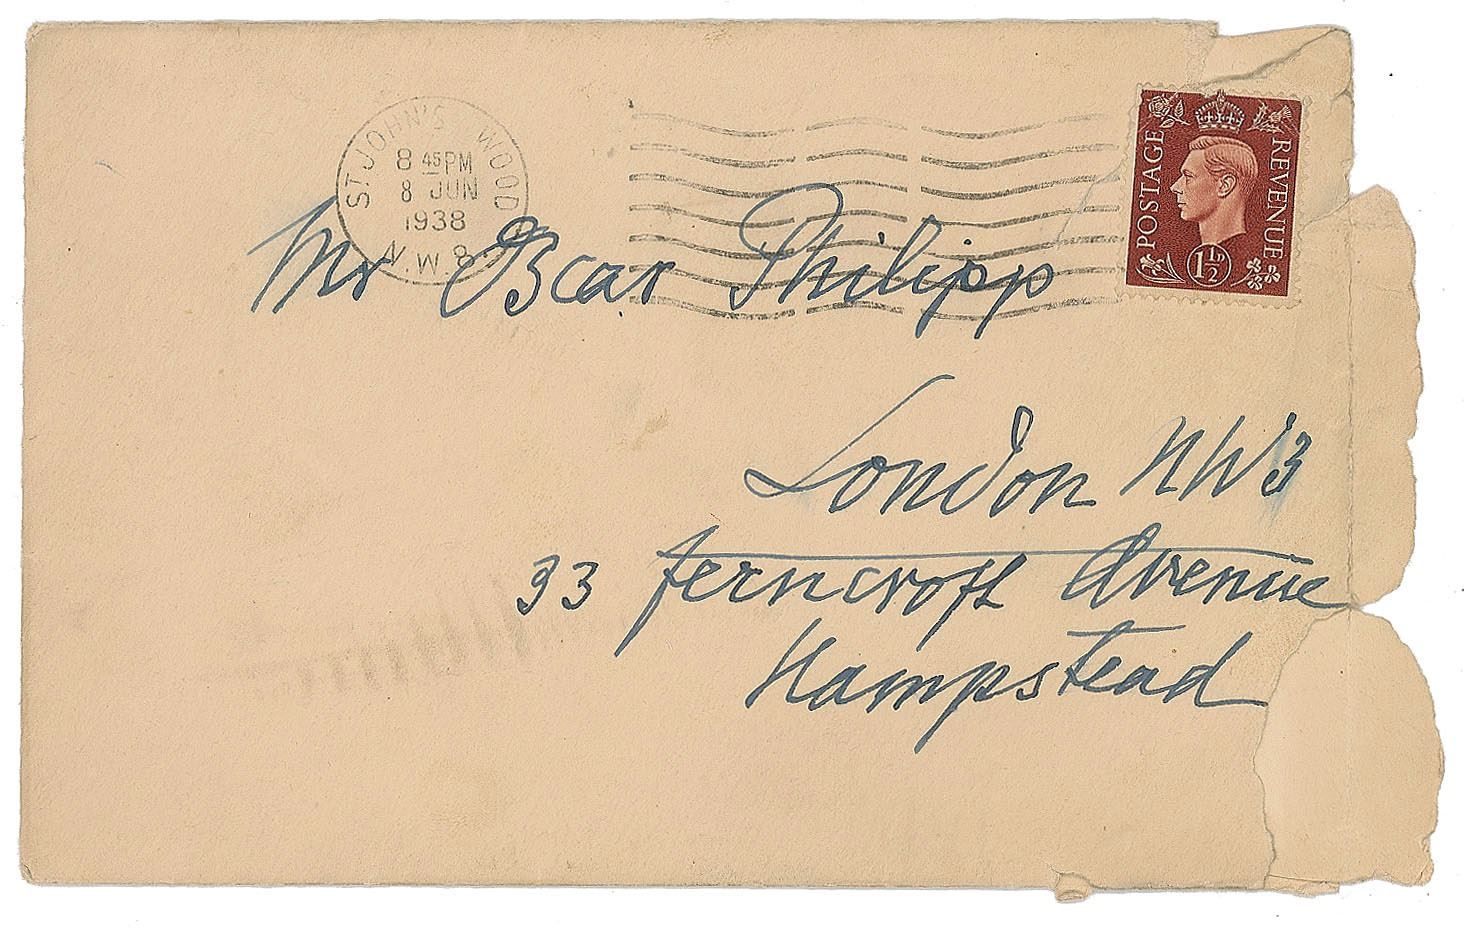 ST JOHN'S WOOD
8 45 PM
8 JUN
1938
N.W.8.
POSTAGE
REVENUE
1½
Mr Oscar Philipp
London NW3
33 Ferncroft Avenue
Hampstead